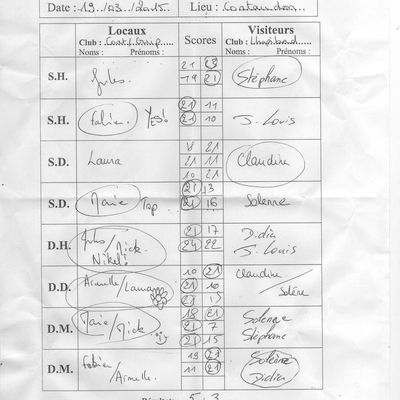 Date : 19../03../2015.. Lieu :
Locaux Scores Visiteurs
Club : Club :
Noms : Prénoms : Noms : Prénoms :
S.H. Jules 21 23 Stéphane
19 21
S.H. Fabien Yes! 21 11 J. Louis
21 10
S.D. Laura 21 11 Claudine
10 21
S.D. Marie Top 21 13 Solenne
21 16
D.H. Jules / Mick. 21 17 Didier
Nickel! 24 22 J. Louis
D.D. Armelle / Laura 10 21 Claudine /
21 16
21
D.M. Marie / Mick 18 21 Solenne
21 7 Stéphane
21 15
D.M. Fabien / 19 21 Solenne
Armelle. 11 21 Didier
5 3